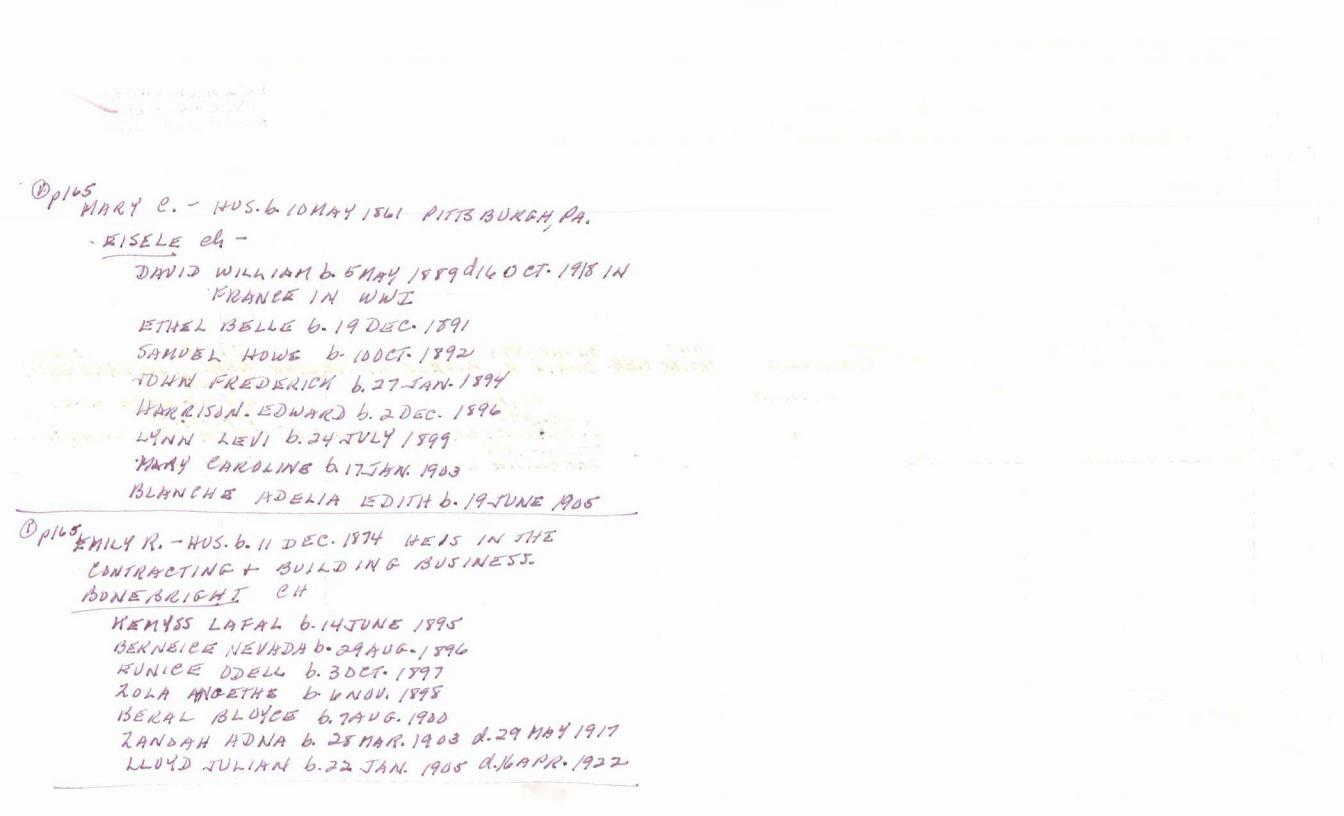 p165
MARY C. - HUS. b. 10 MAY 1861 PITTSBURGH, PA.
EISELE ch -
DAVID WILLIAM b. 5 MAY 1889 d 16 OCT. 1918 IN
FRANCE IN WWI
ETHEL BELLE b. 19 DEC. 1891
SAMUEL HOWE b. 10 OCT. 1892
JOHN FREDERICK b. 27 JAN. 1894
HARRISON. EDWARD b. 2 DEC. 1896
LYNN LEVI b. 24 JULY 1899
MARY CAROLINE b. 17 JAN. 1903
BLANCHE ADELIA EDITH b. 19 JUNE 1905
p165
EMILY R. - HUS. b. 11 DEC. 1874 HE IS IN THE
CONTRACTING + BUILDING BUSINESS.
BONEBRIGHT CH
KEMYSS LAFAL b. 14 JUNE 1895
BERNEICE NEVADA b. 29 AUG. 1896
EUNICE ODELL b. 3 OCT. 1897
ZOLA b. 6 NOV. 1898
BERAL BLOYCE b. 7 AUG. 1900
ZANDAH ADNA b. 28 MAR. 1903 d. 29 MAY 1917
LLOYD JULIAN b. 22 JAN. 1905 d. 16 APR. 1922